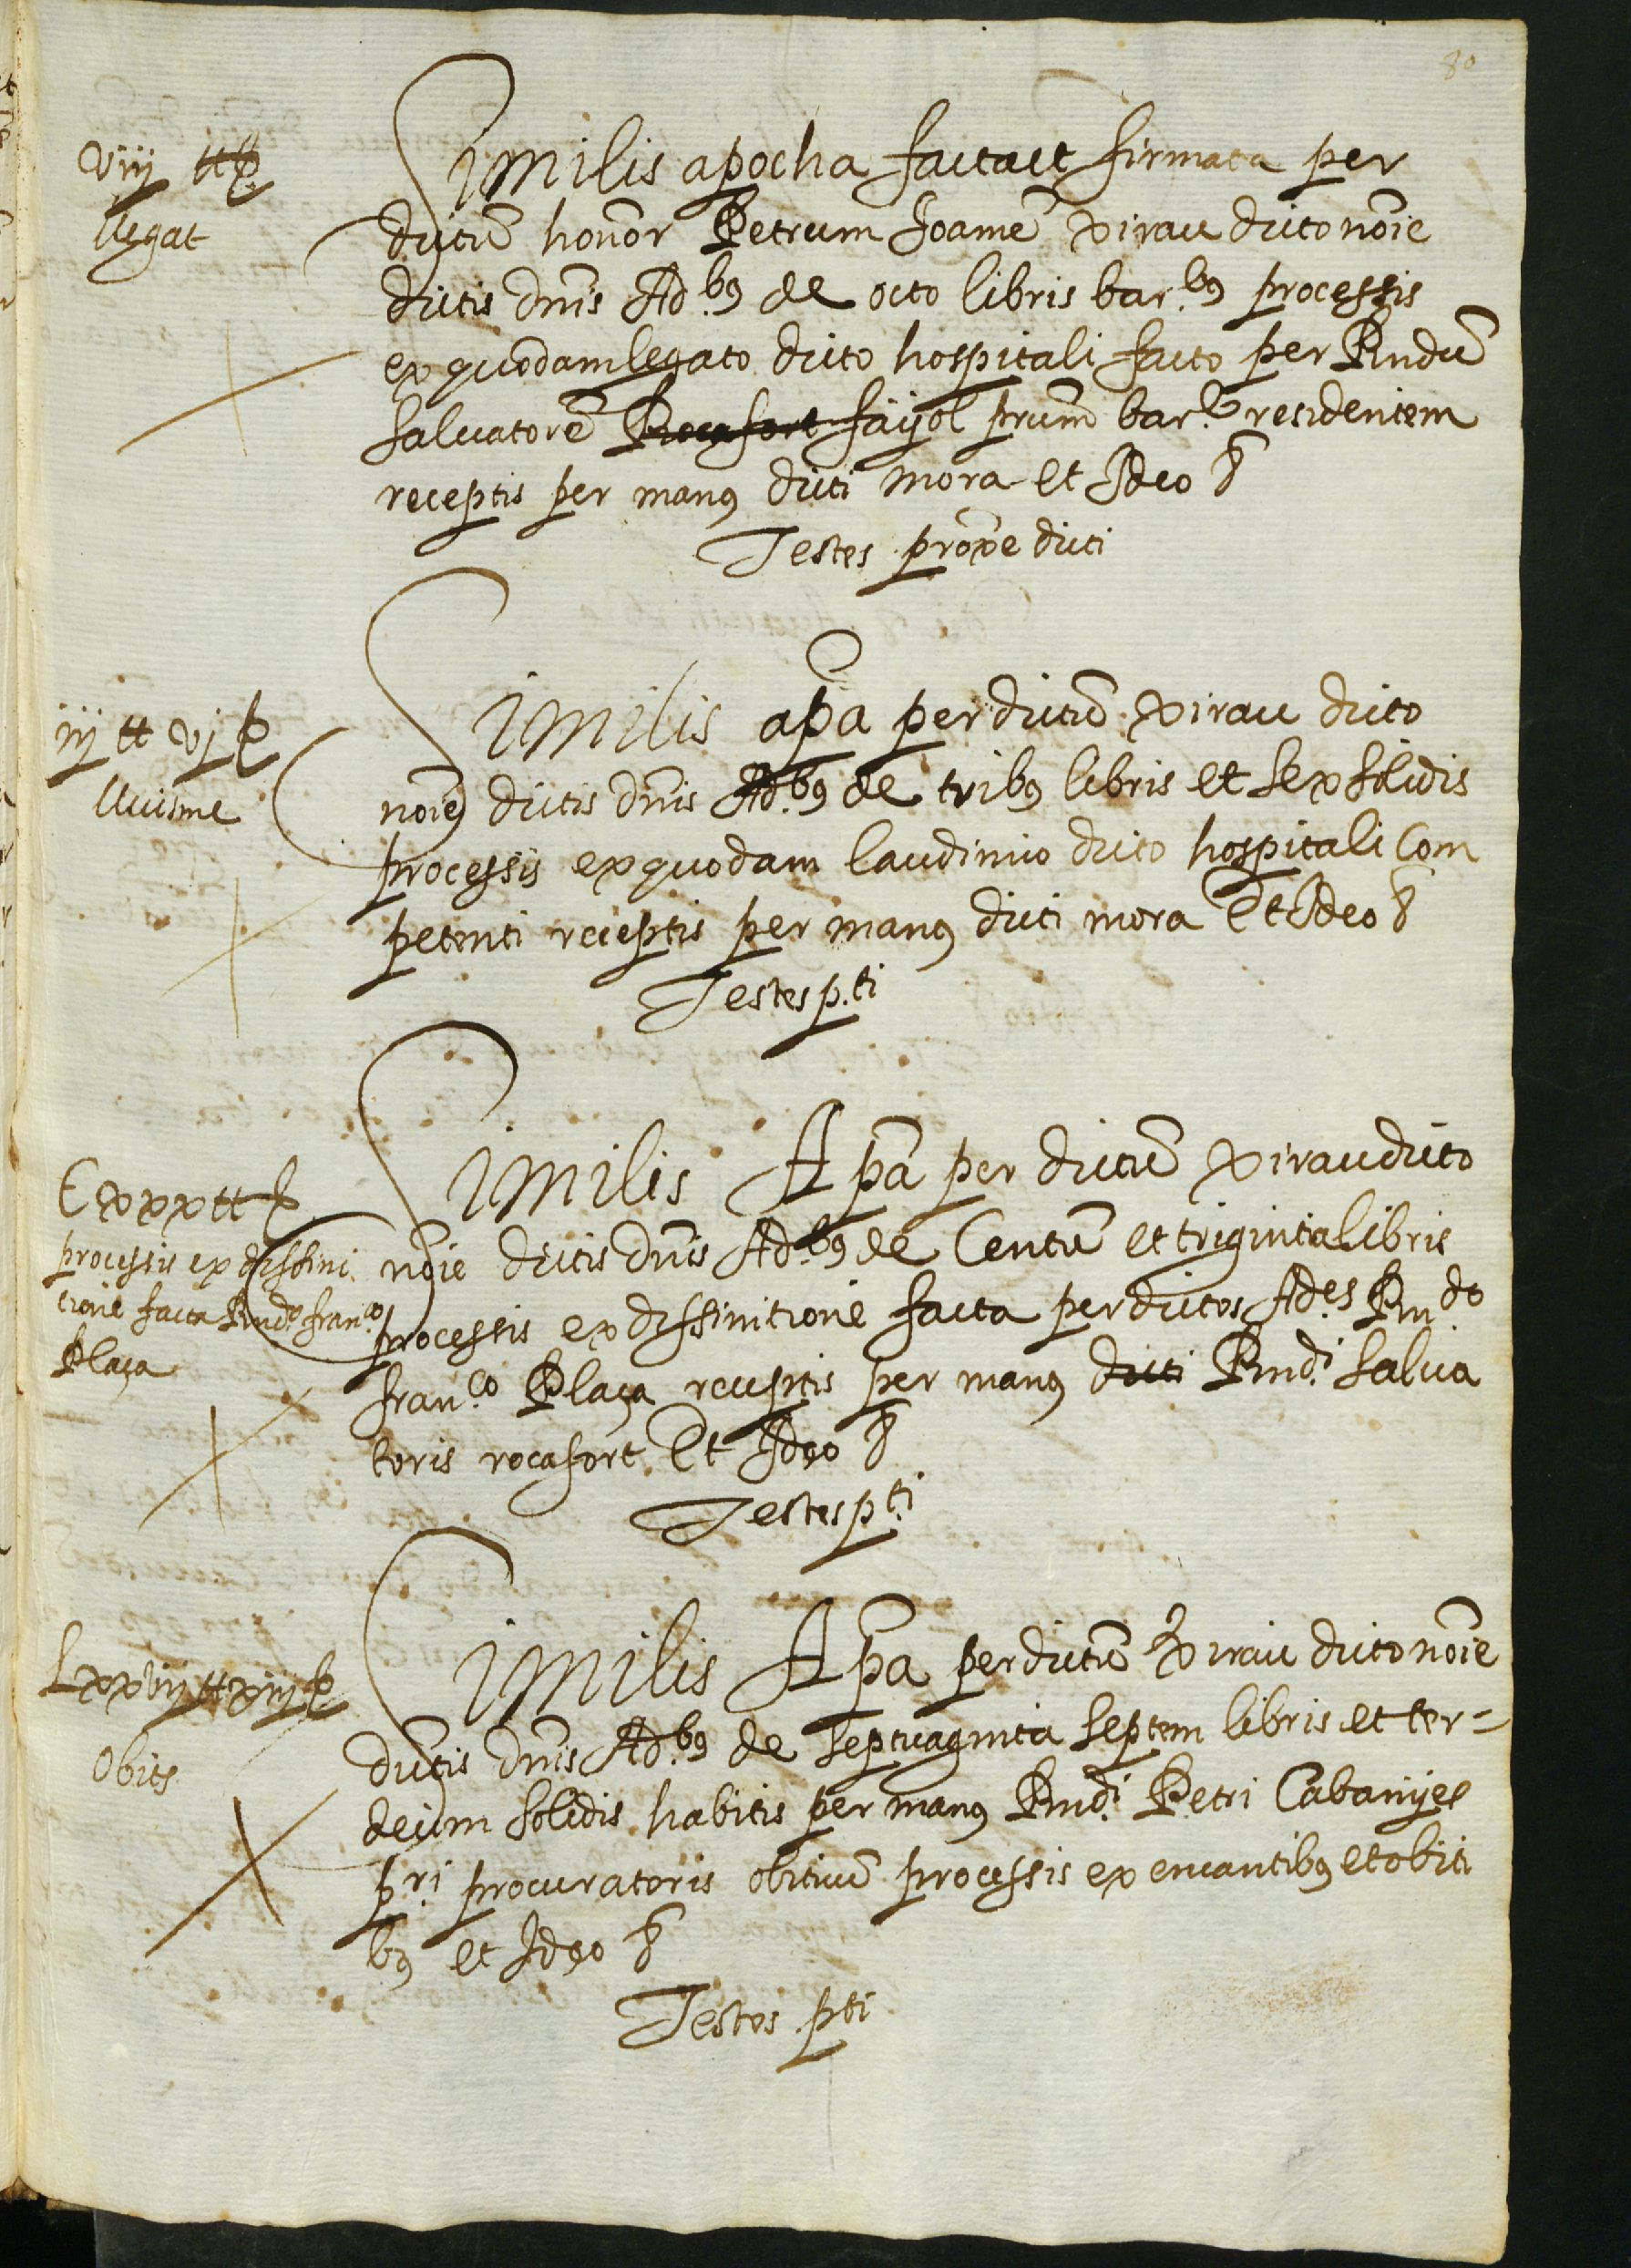 80
viij ℔ ß
llegat
Similis apocha facta et firmata per
dictū honor̄ Petrum Joanē Xirau dicto nōie
dictis dnīs Ad.bꝯ de octo libris bar.bꝯ processis
ex quodam legato dicto hospitali facto per Rndū
Saluatorē Rocafort fayol prum̄ bar.e residentem
receptis per manꝯ dicti Mora et Ideo &
Testes proxē dicti
iij ℔ vj ß
lluisme
Similis apā per dictū Xirau dicto
nōie dictis dnīs Ad.bꝯ de tribꝯ libris et sex solidis
processis ex quodam laudimio dicto hospitali Com
petenti receptis per manꝯ dicti mora Et Ideo &
Testes p.ti
Cxxx ℔ ß
processis ex diffini
tione facta Rndo fran.co
Plaça
Similis Apā per dictū Xirau dicto
nōie dictis dnīs Ad.bꝯ de Centū et triginta libris
processis ex diffinitione facta per dictos Ad.es Rn.do
fran.co Plaça receptis per manꝯ dicti Rnd.i Salua
toris rocafort Et Ideo &
Testes p.ti
Lxxvij ℔ xiij ß
Obits
Similis Apā per dictū Xirau dicto nōie
dictis dnīs Ad.bꝯ de septuaginta septem libris et ter=
decim solidis habitis per manꝯ Rnd.i Petri Cabanyes
pr.i procuratoris obituū processis ex encantibꝯ et obiti
bꝯ et Ideo &
Testes pti